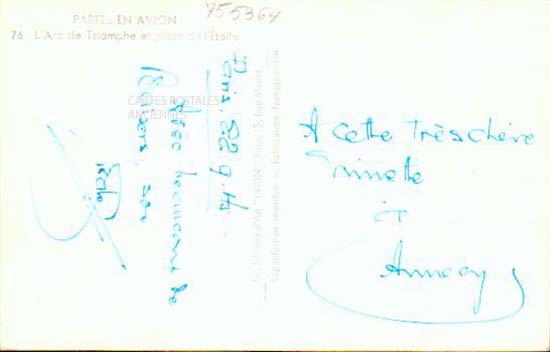 755364
PARIS... EN AVION
76 L'Arc de Triomphe et place de l'Étoile
CARTES POSTALES
ANCIENNES
Paris. 22.9.
Avec beaucoup de
Baisers. son
A cette Très chère
Ninette
Annecy
Les Editions d'Art "YVON", Paris, 15, Rue Martel
Reproduction interdite — Fabrication Française